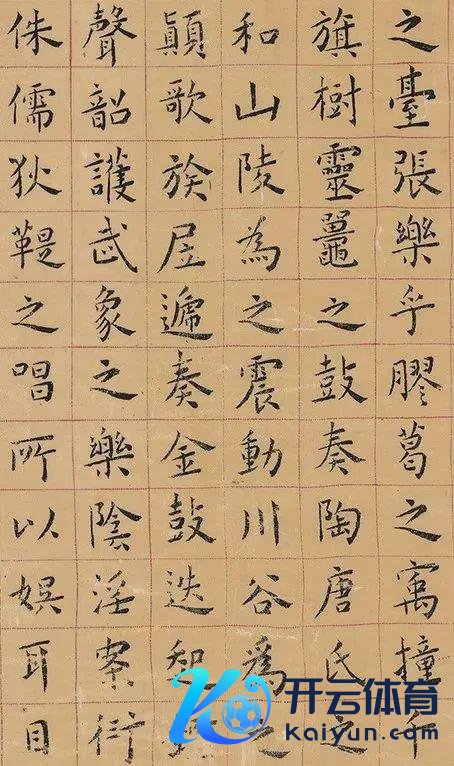 之臺張樂乎膠葛之寓撞千
旗樹靈鼉之鼓奏陶唐氏之
和山陵為之震動川谷爲之
顛歌族居遞奏金鼓迭起
聲韶護武象之樂陰淫案衍
侏儒狄鞮之唱所以娛耳目
开云体育
kaiyun.com